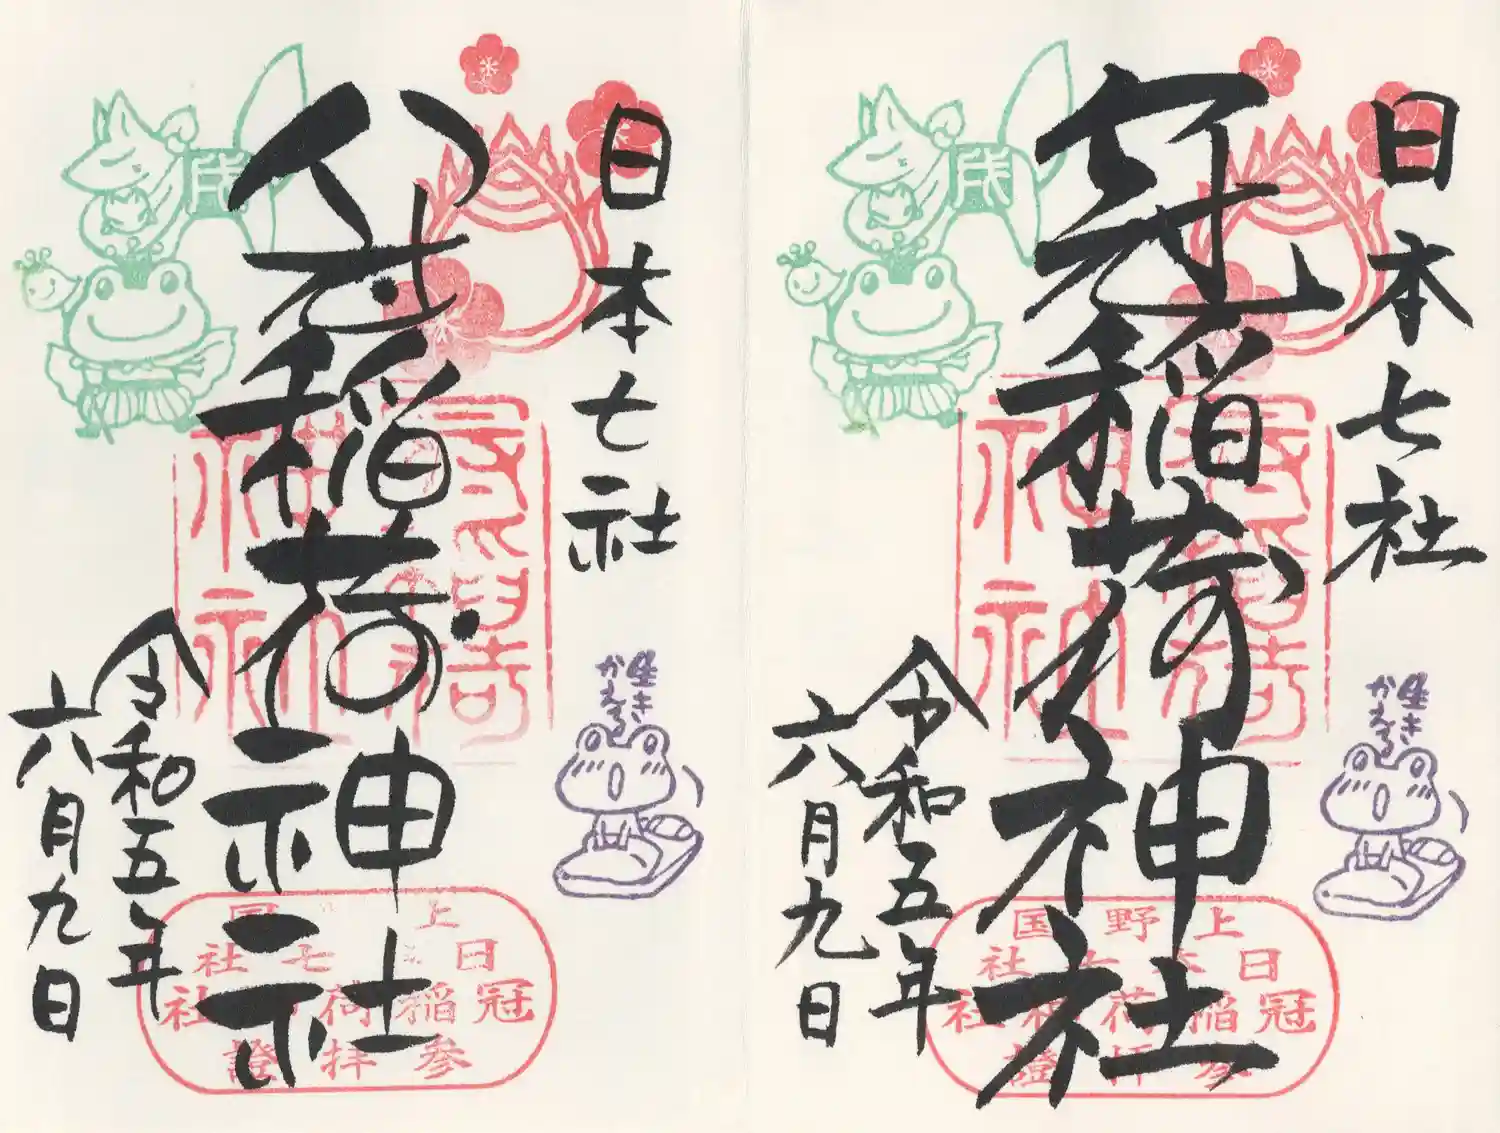 日本七社
冠稲荷神社
令和五年
六月九日
生き
かえる
上野国
日本七社
冠稲荷神社
参拝證
日本七社
稲荷神社
令和五年
六月九日
生き
かえる
上国
日七社
冠稲荷社
参拝證